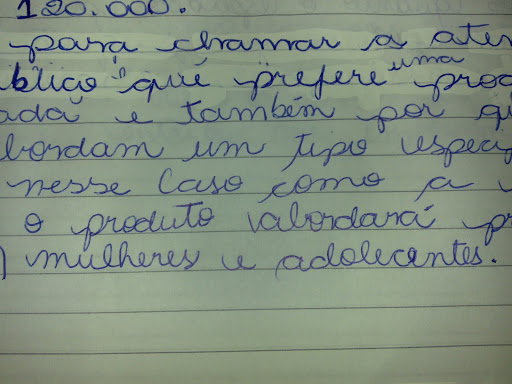 120.000.
para chamar a aten
blico que prefere uma prod
ada e também por q
bordam um tipo especi
nesse caso como a
o produto abordará p
) mulheres e adolecentes.